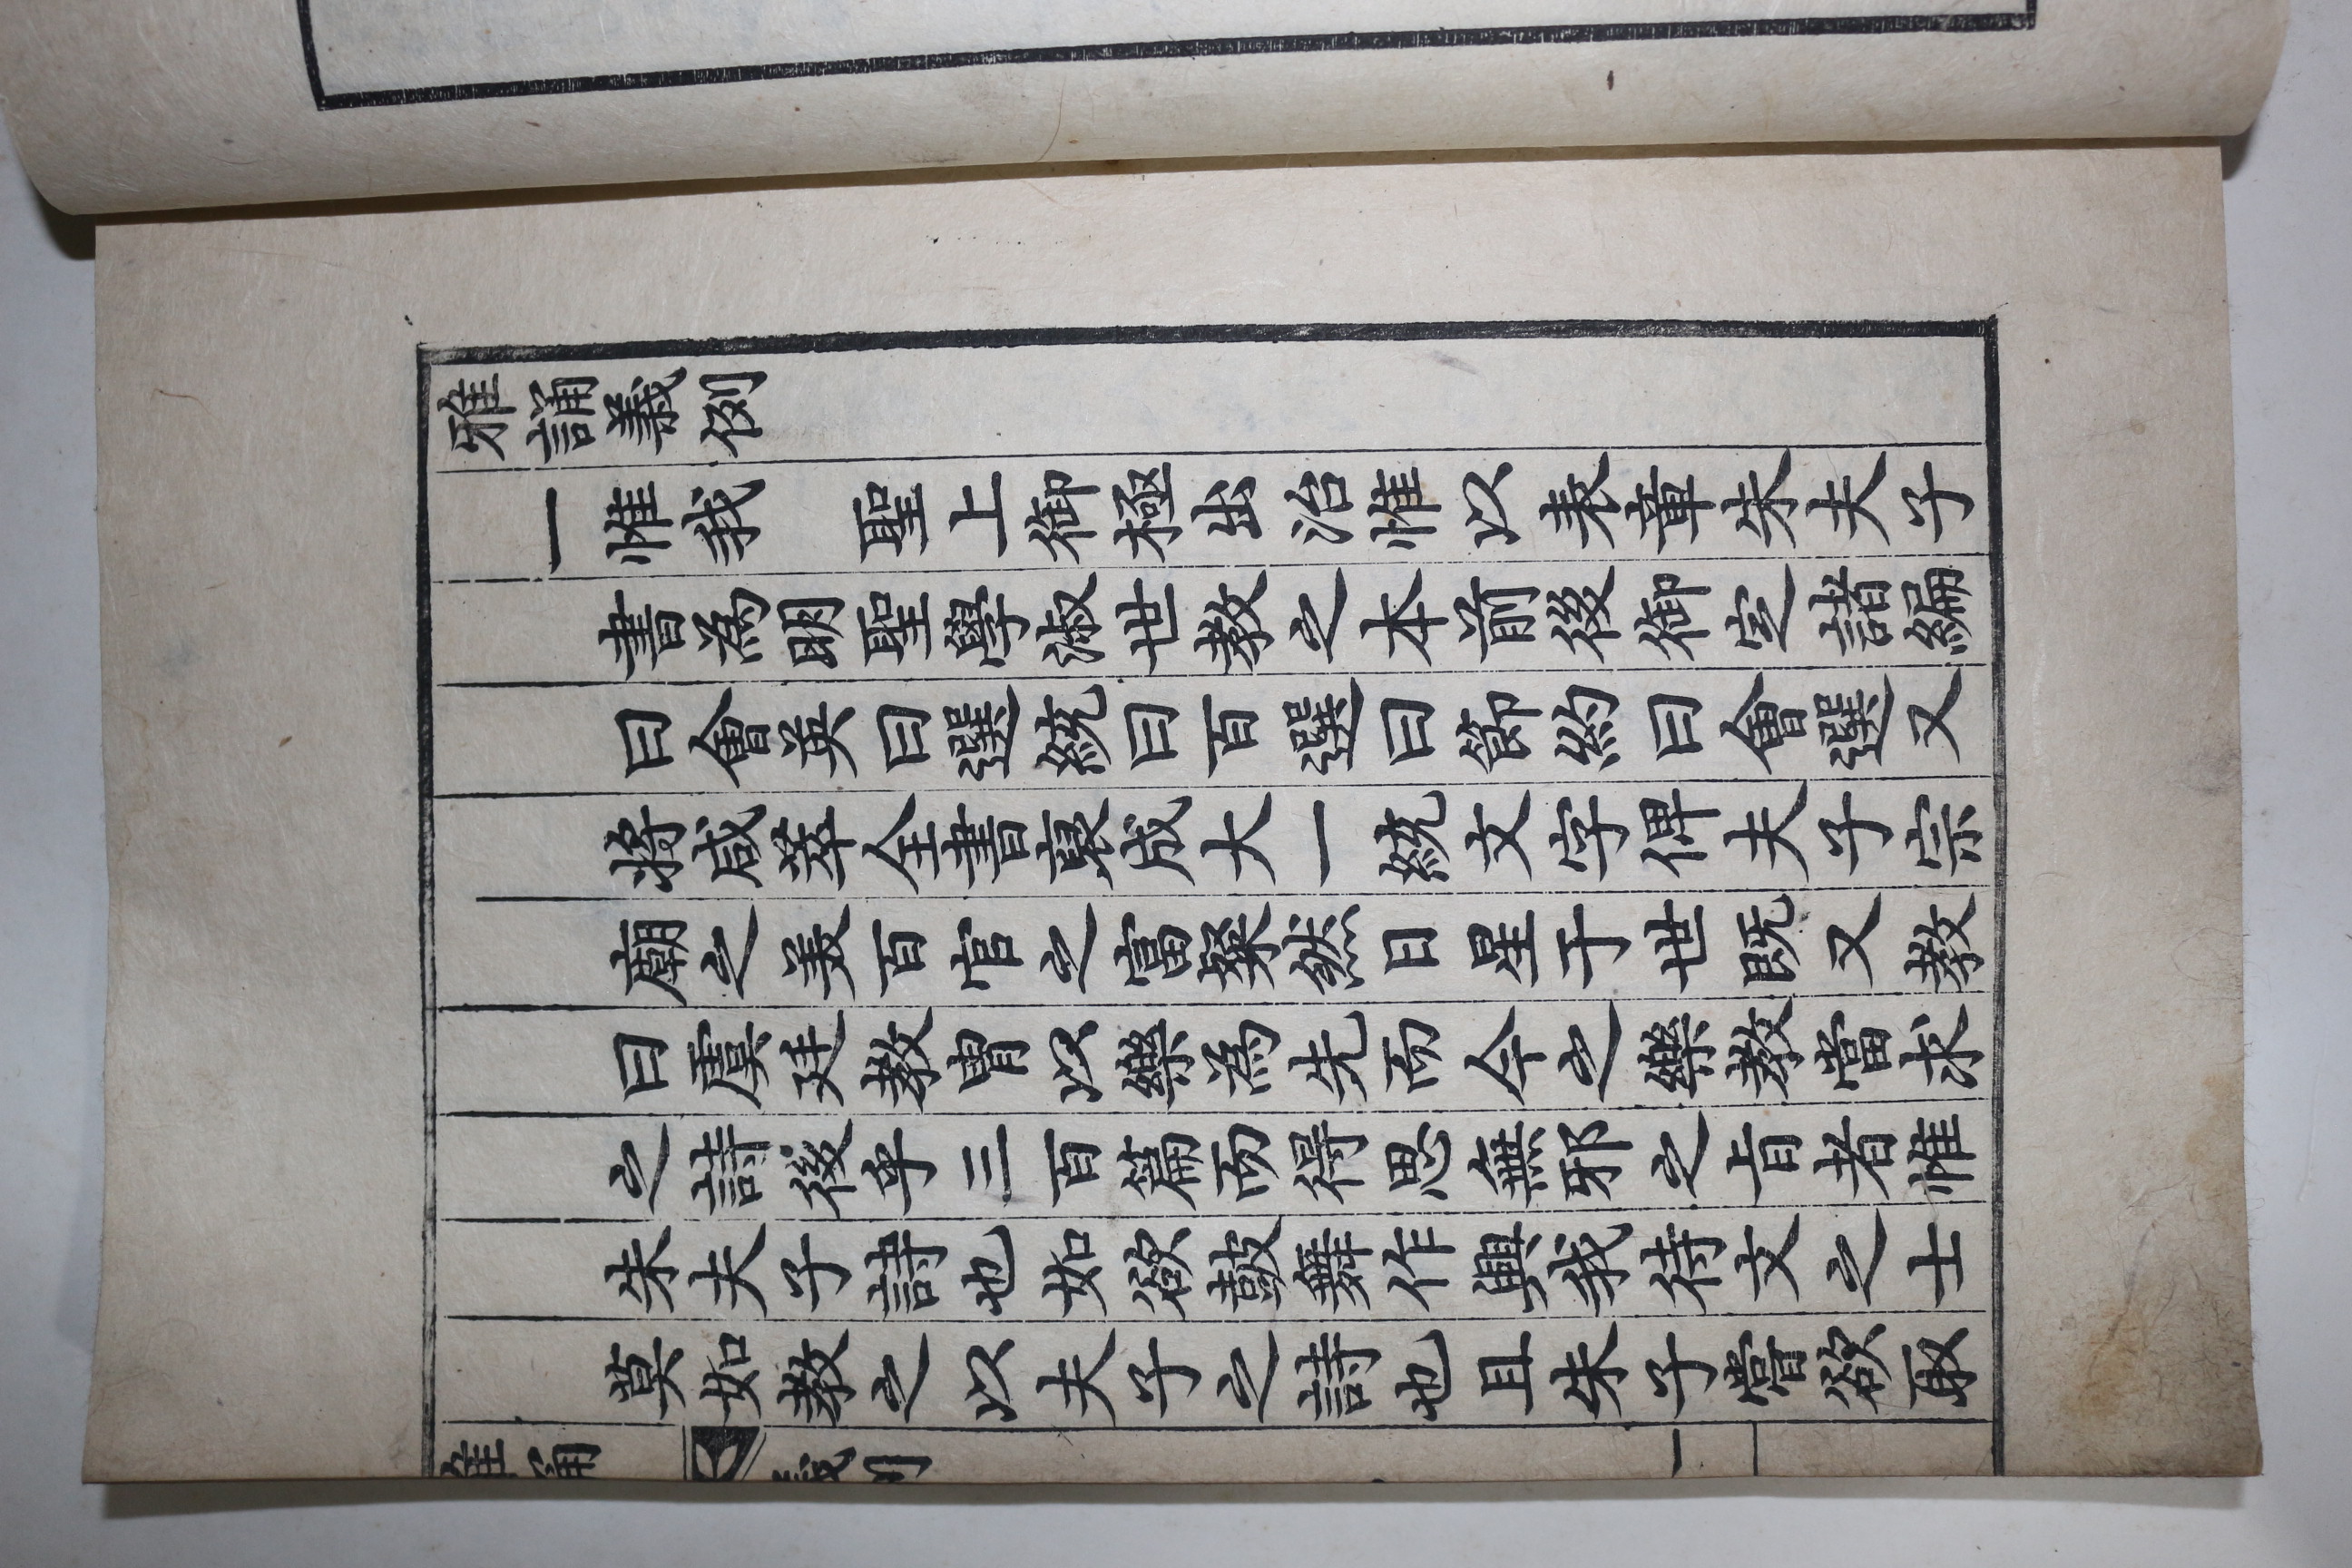 雅誦義例
一惟我　聖上御極出治惟以表章朱夫子
書為明聖學淑世教之本前後御定諸編
曰會英曰選統曰百選曰節約曰會選又
將咸萃全書裒成大一統文字俾夫子宗
廟之美百官之富粲然日星于世既又教
曰虞廷教胄以樂為先而今之樂教當求
之詩後乎三百篇而得思無邪之旨者惟
朱夫子詩也如欲鼓舞作興我待文之士
莫如教之以夫子之詩也且朱子嘗欲取
雅誦　義例　一